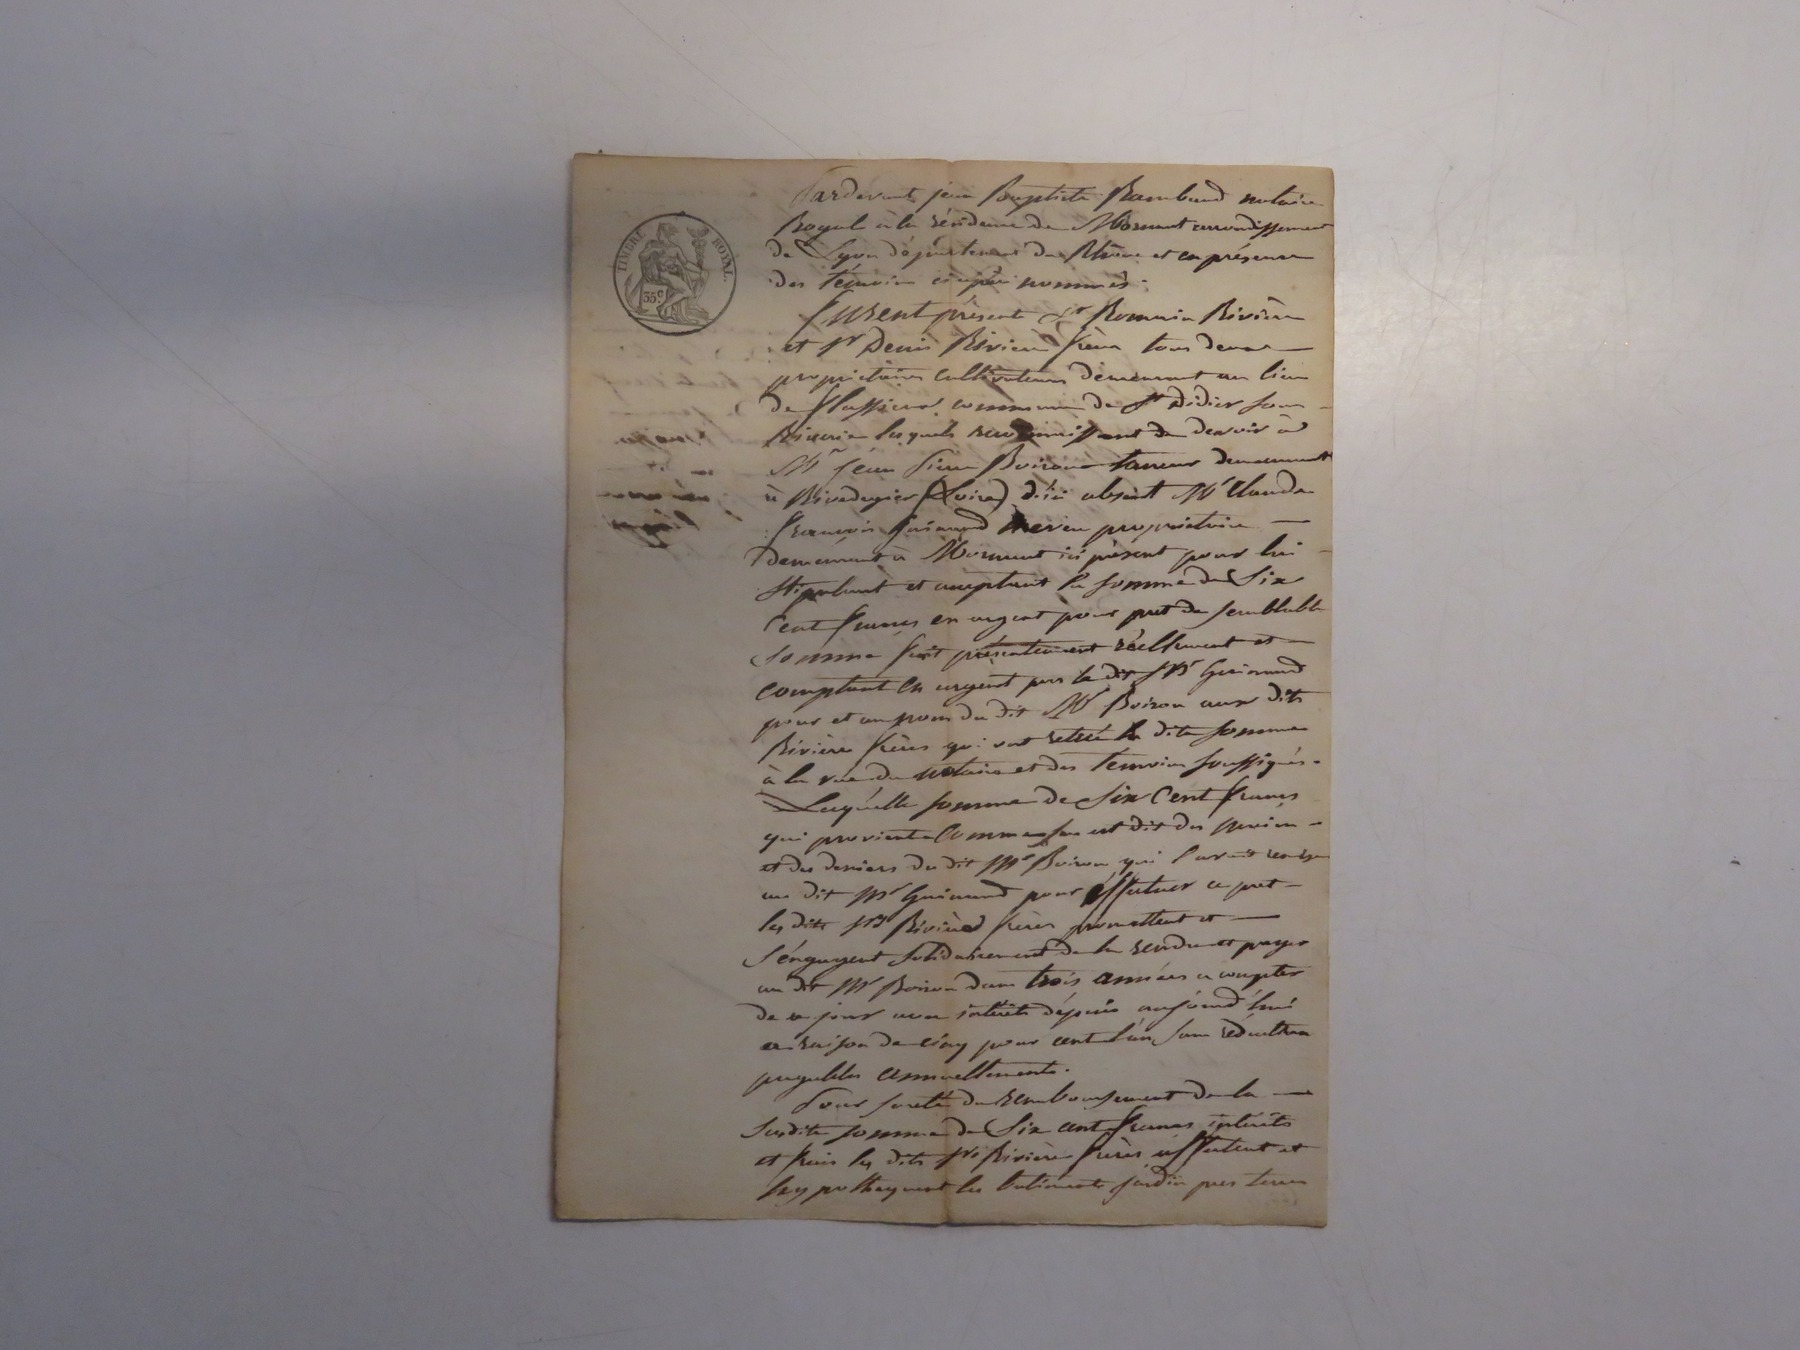 TIMBRE ROYAL
35 C
Pardevant jean Baptiste Rambaud notaire
Royal à la résidence de Mornant arrondissement
de Lyon département du Rhône et en présence
des témoins ci après nommés.
furent présent Sr Romain Rivière
et Sr Denis Rivière frères tous deux
propriétaires cultivateurs demeurant au lieu
de commune de St Didier sous
Riverie lesquels reconnaissent de devoir à
Mr jean Boiron demeurant
à Rivedegier (Loire) d'ici absent Mr Claude
françois neveu propriétaire
demeurant à Mornant ici présent pour lui
stipulant et acceptant la somme de Six
Cent francs en argent pour pret de semblable
somme fait présentement réellement et
comptant en argent par le dit Mr
pour et au nom du dit Mr Boiron aux dits
Rivière frères qui ont retiré la dite somme
à la vue du notaire et des témoins soussignés.
Laquelle somme de Six Cent francs
qui provient comme est dit des
et des deniers du dit Mr Boiron qui l'avait
au dit Mr pour effectuer ce pret
les dits Srs Rivière frères promettent et
s'engagent solidairement de la rendre et payer
au dit Mr Boiron dans trois années a compter
de ce jour avec intérêts dépuis aujourd'hui
a raison de cinq pour cent l'an, sans réduction
payables annuellement.
Pour sureté du remboursement de la
susdite somme de Six cent francs intérêts
et frais les dits Srs Rivière frères affectent et
hypothequent les batiments jardin pres terres